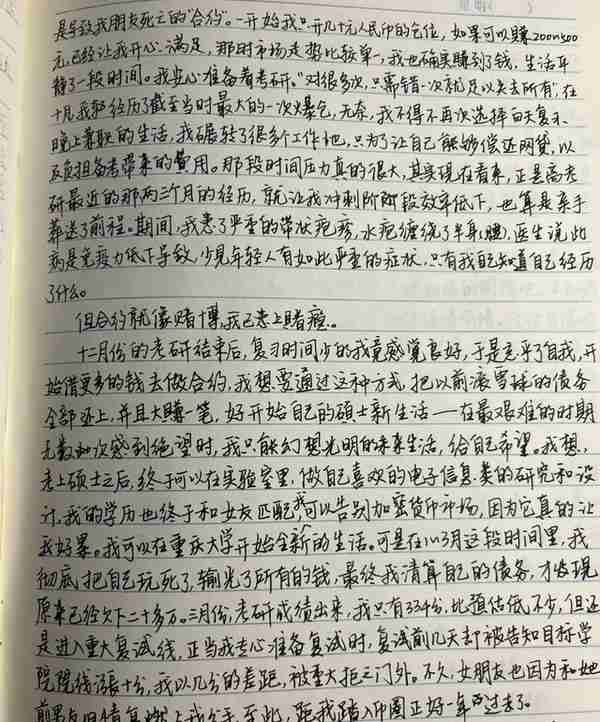 是导致我朋友死亡的“合约”。一开始我只开几十元人民币的仓位，如果可以赚200%500
元，已经让我开心满足，那时市场走势比较单一，我也确实赚到了钱，生活平
静了一段时间。我安心准备着考研。“对很多次，只需错一次就足以失去所有”，在
十月我就经历了截至当时最大的一次爆仓，无奈，我不得不再次选择白天复习、
晚上兼职的生活，我碾转了很多个工作地，只为了让自己能够偿还网贷，以
及负担备考带来的费用。那段时间压力真的很大，其实现在看来，正是离考
研最近的那两三个月的经历，就让我冲刺阶段效率低下，也算是亲手
葬送了前程。期间，我患了严重的带状疱疹，水疱缠绕了半身腰，医生说此
病是免疫力低下导致，少见年轻人有如此严重的症状，只有我自己知道自己经历
了什么。
但合约就像赌博，我已患上赌瘾。
十二月份的考研结束后，复习时间少的我竟感觉良好，于是忘乎了自我，开
始借更多的钱去做合约，我想要通过这种方式，把以前滚雪球的债务
全部还上，并且大赚一笔，好开始自己的硕士新生活——在最艰难的时期
无数次感到绝望时，我只能幻想光明的未来生活，给自己希望。我想，
考上硕士之后，终于可以在实验室里，做自己喜欢的电子信息类的研究和设
计，我的学历也终于和女友匹配，我可以告别加密货币市场，因为它真的让
我好累。我可以在重庆大学开始全新的生活。可是在1~3月这段时间里，我
彻底把自己玩死了，输光了所有的钱，最终我清算自己的债务，才发现
原来已经欠下二十多万。三月份，考研成绩出来，我只有334分，比预估低不少，但还
是进入重大复试线，正当我专心准备复试时，复试前几天却被告知目标学
院院线涨十分，我以几分的差距，被重大拒之门外。不久，女朋友也因为和她
前男友旧情复燃与我分手，至此，距我踏入币圈正好一年过去了。